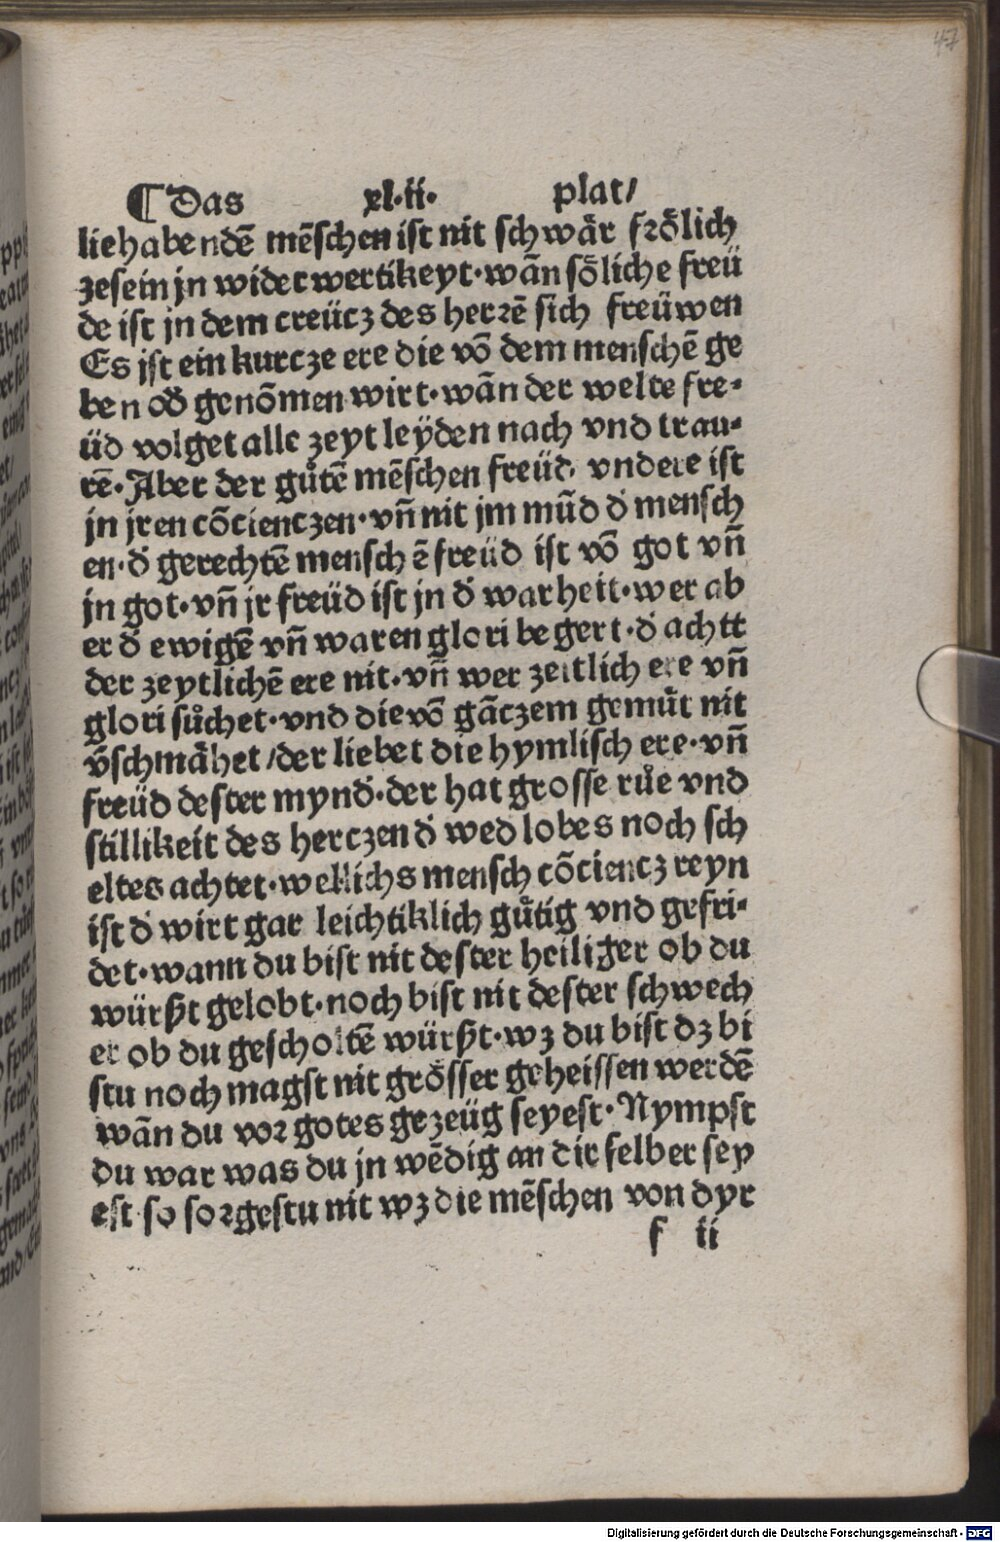 47
¶ Das xl·ii· plat/
liehabendē mēschen ist nit schwår frőlich
zesein jn widerwertikeyt·wān sőliche freü
de ist jn dem creücz des herrē sich freüwen
Es jst ein kurcze ere die võ dem menschē ge
ben oď genõmen wirt·wān der welte fre⸗
üd volget alle zeyt leÿden nach vnd trau⸗
rē·Aber der gůtē mēschen freüd vnd ere ist
jn jren cõcienczen·vñ nit jm mūd ď mensch
en·ď gerechtē menschē freüd ist võ got vñ
jn got·vñ jr freüd ist jn ď warheit·wer ab
er ď ewigē vñ waren glori begert·ď achtt
der zeytlichē ere nit·vñ wer zeitlich ere vñ
glori sůchet·vnd die võ gāczem gemůt nit
v̄schmåhet/der liebet die hymlisch ere·vñ
freüd dester mynď·der hat grosse růe vnd
stillikeit des herczen ď wed lobes noch sch
eltes achtet·wellichs mensch cõciencz reyn
ist ď wirt gar leichtiklich gůtig vnd gefri⸗
det·wann du bist nit dester heiliger ob du
würßt gelobt·noch bist nit dester schwech
er ob du gescholtē würßt·wz du bist dz bi
stu noch magst nit grősser geheissen werdē
wān du vor gotes gezeüg seyest·Nympst
du war was du jn wēdig an dir selber sey
est·so sorgestu nit wz die mēschen von dyr
f ii
Digitalisierung gefördert durch die Deutsche Forschungsgemeinschaft - DFG